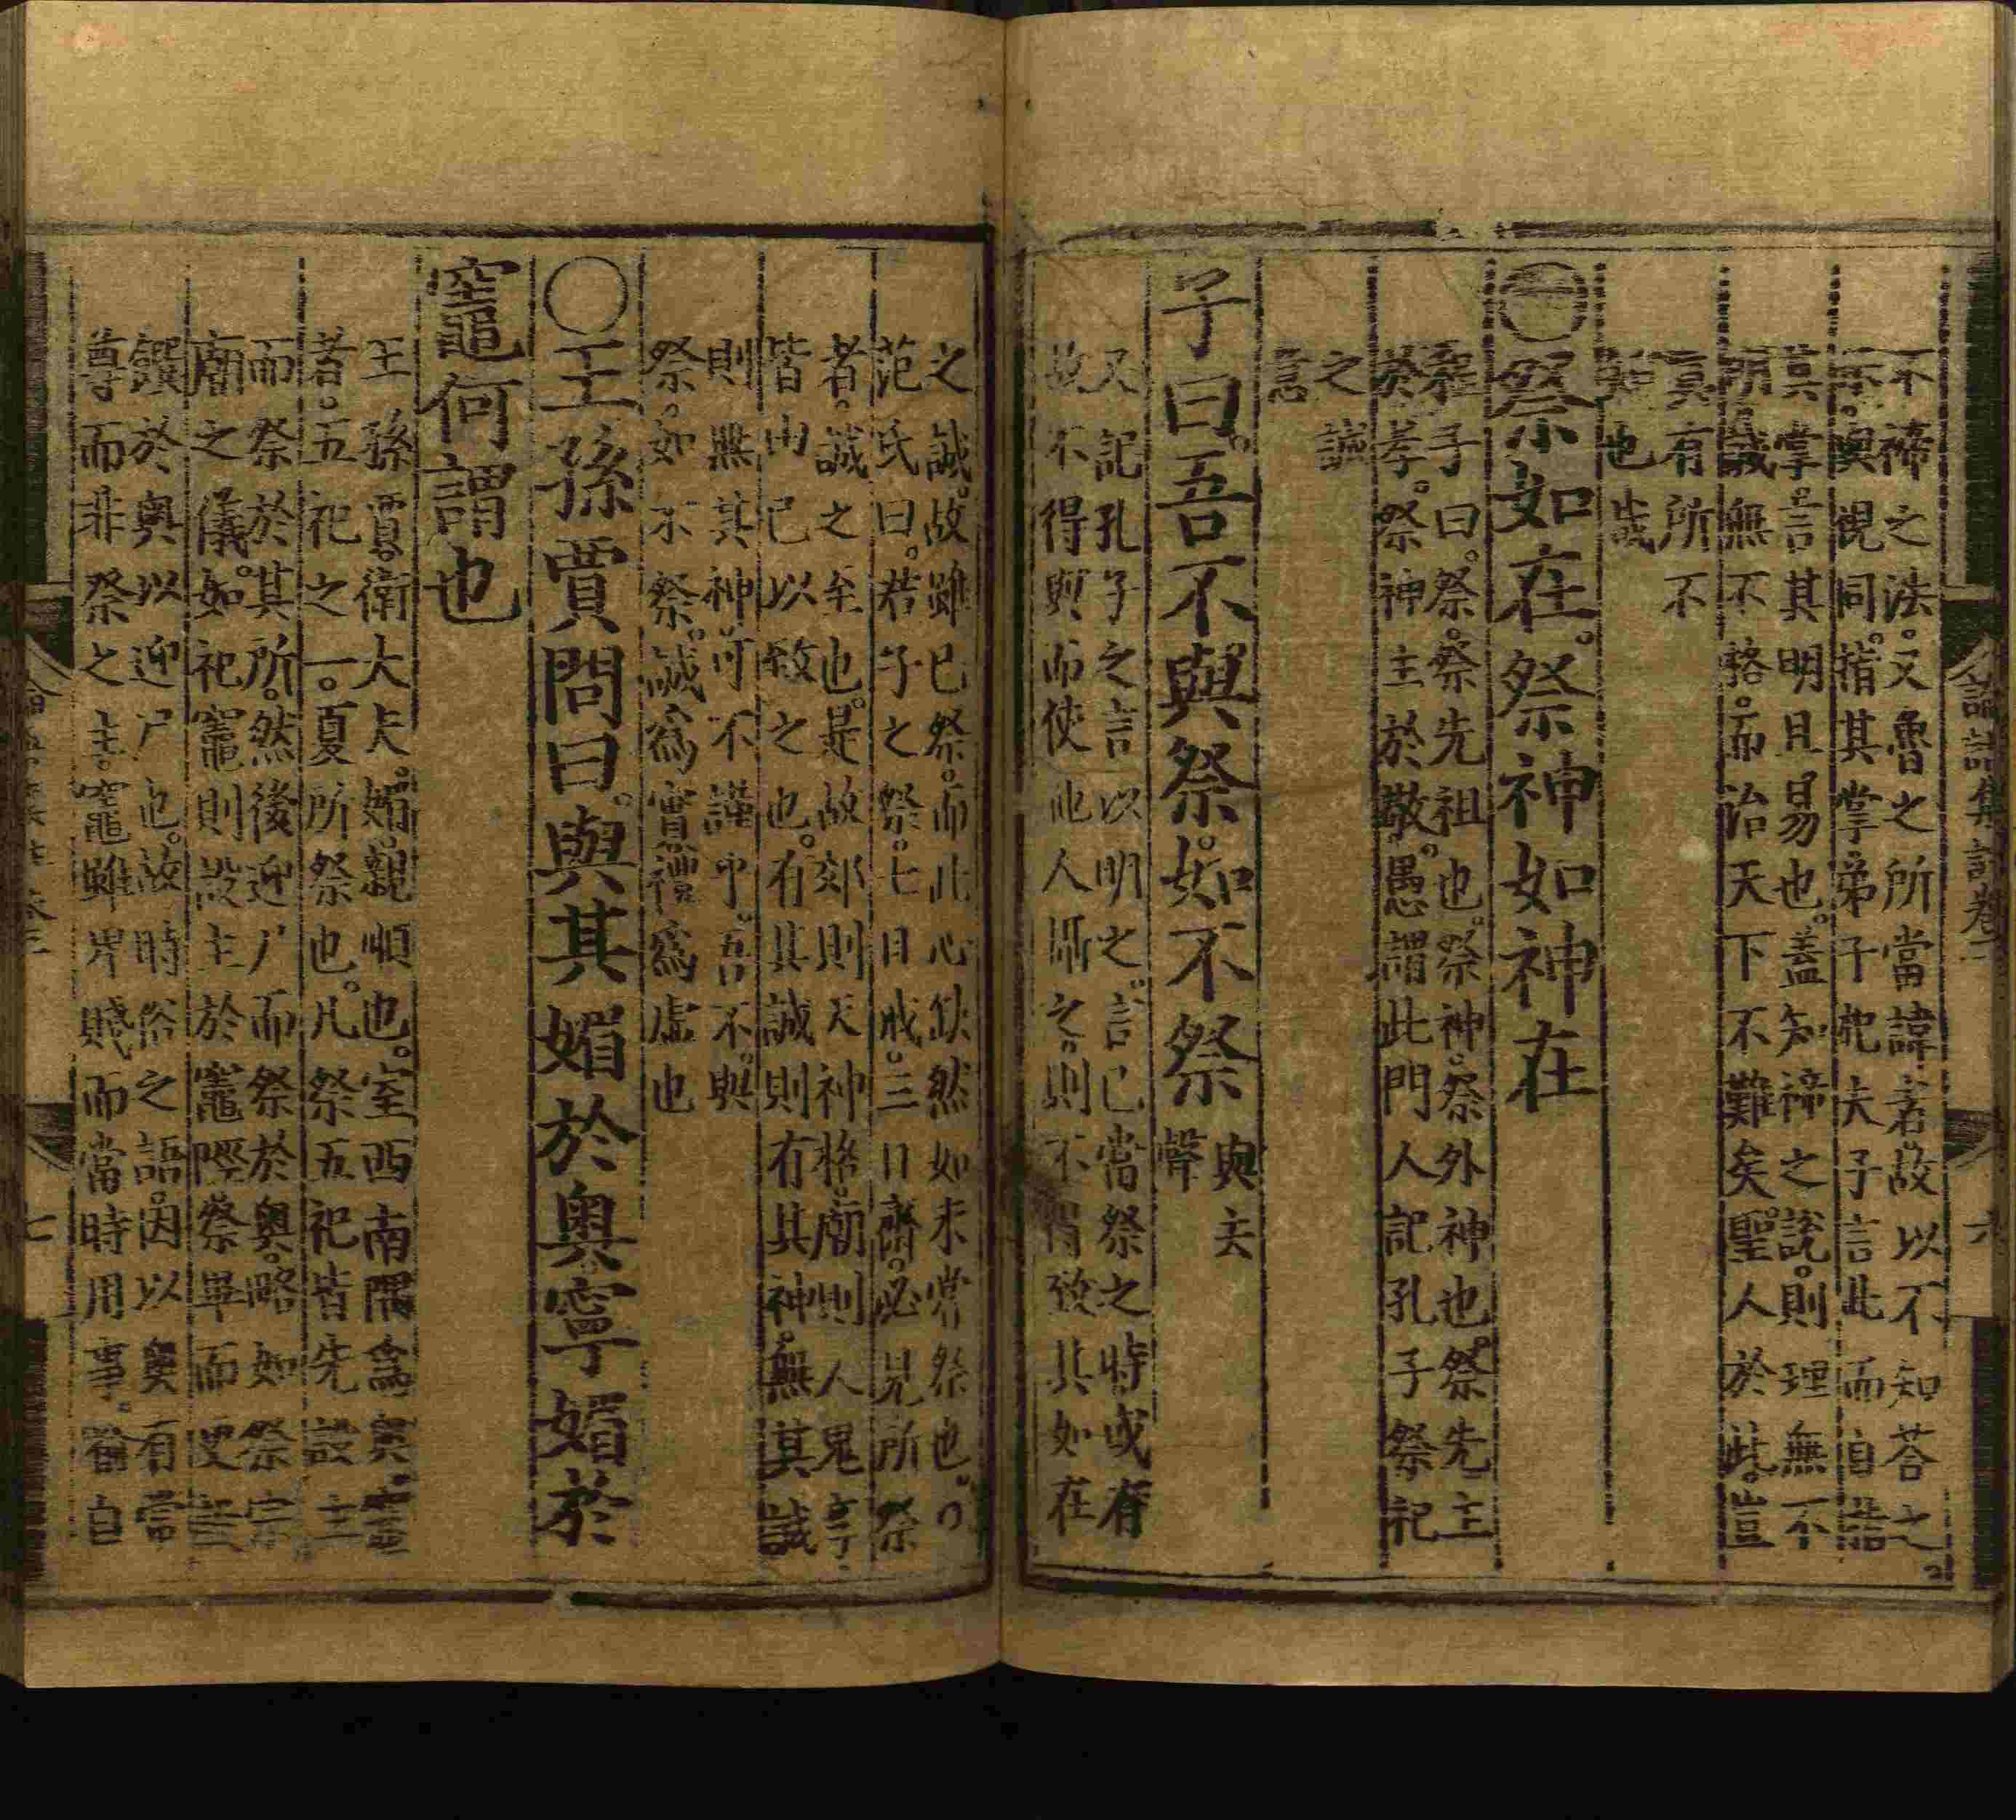 不禘之法又魯之所當諱者故以不知荅之
示與視同指其掌弟子記夫子言此而自指
其掌言其明且易也蓋知禘之說則理無不
明誠無不格而治天下不難矣聖人於此豈
真有所不
知也哉
○祭如在祭神如神在
程子曰祭祭先祖也祭神祭外神也祭先主
於孝祭神主於敬愚謂此門人記孔子祭祀
之誠
意
子曰吾不與祭如不祭
與去
聲
又記孔子之言以明之言己當祭之時或有
故不得與而使他人攝之則不得致其如在
論語集註卷二 六
之誠故雖已祭而此心缺然如未嘗祭也○
范氏曰君子之祭七日戒三日齊必見所祭
者誠之至也是故郊則天神格廟則人鬼享
皆由己以致之也有其誠則有其神無其誠
則無其神可不謹乎吾不與
祭如不祭誠為實禮為虛也
○王孫賈問曰與其媚於奧寧媚於
竈何謂也
王孫賈衛大夫媚親順也室西南隅為奧竈
者五祀之一夏所祭也凡祭五祀皆先設主
而祭於其所然後迎尸而祭於奧略如祭宗
廟之儀如祀竈則設主於竈陘祭畢而更設
饌於奧以迎尸也故時俗之語因以奧有常
尊而非祭之主竈雖卑賤而當時用事喻自
七